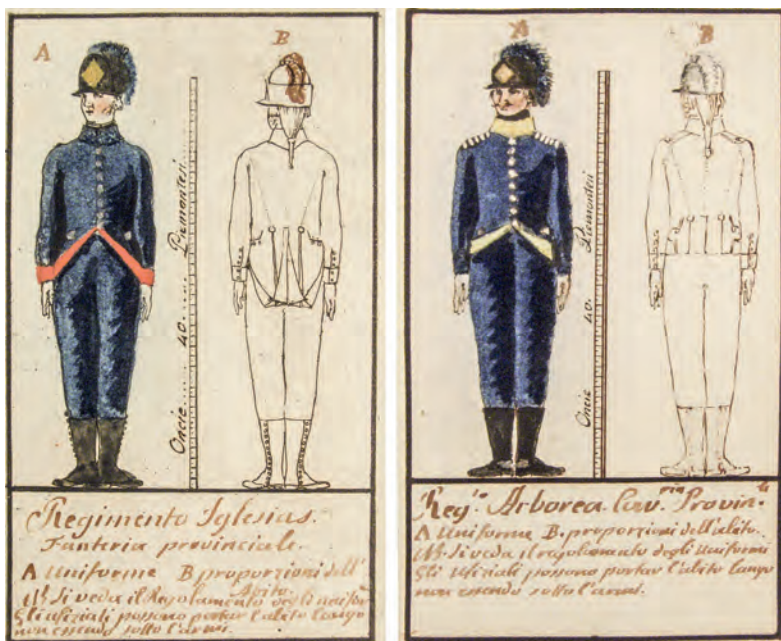 A
B
Oncie.... 40..... Piemontesi...
Regimento Iglesias.
Fanteria provinciale.
A Uniforme B proporzioni dell'
Abito.
Nb. Si veda il Regolamento degli unifor
Gli ufiziali possono portar l'abito lungo
non essendo sotto l'armi.
A
B
Oncie 40. Piemontesi
Reg.to Arborea. Cav.ria Provin.le
A Uniforme B. proporzioni dell'abito.
Nb. Si veda il regolamento degli uniformi
Gli Ufiziali possono portar l'abito lungo
non essendo sotto l'armi.